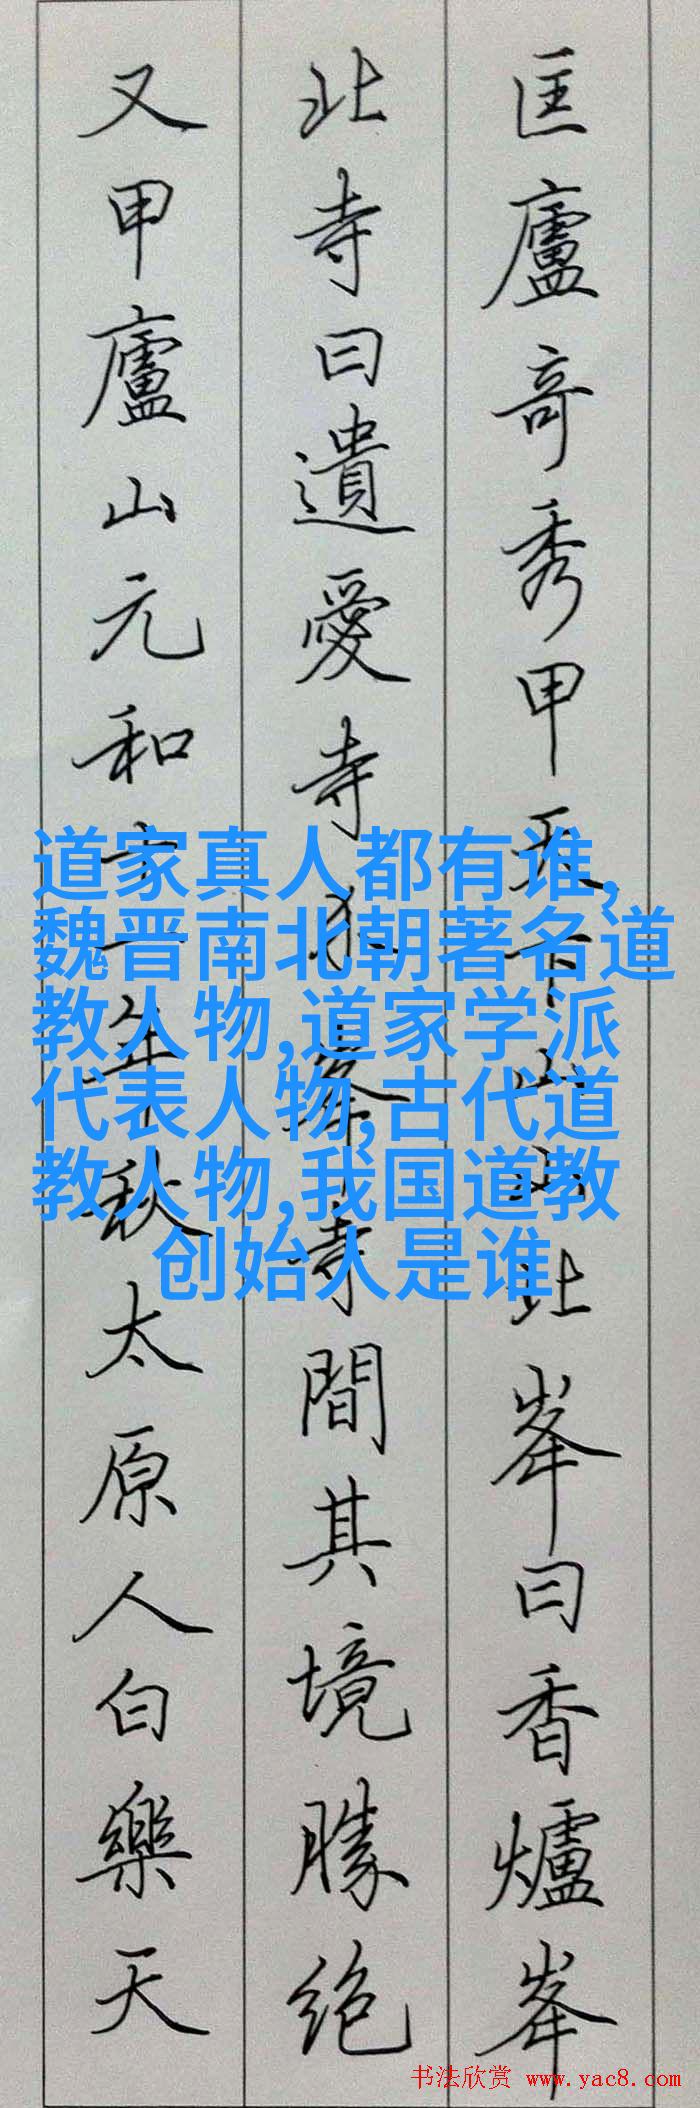 匡廬竒秀甲天下山山北峯曰香爐峯
北寺曰遺愛寺峯寺間其境勝绝
又甲廬山元和十一年秋太原人白樂天
道家真人都有谁,
魏晋南北朝著名道
教人物,道家学派
代表人物,古代道
教人物,我国道教
创始人是谁
书法欣赏 www.yac8.com